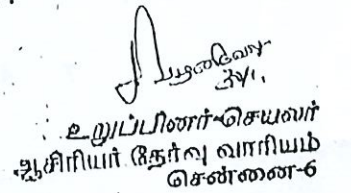 உறுப்பினர்-செயலர்
ஆசிரியர் தேர்வு வாரியம்
சென்னை-6